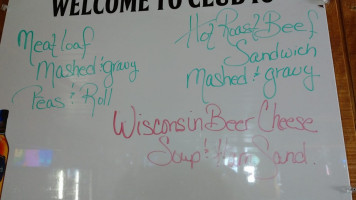 WELCOME TO CLUB 10
Meatloaf
Mashed & gravy
Peas & Roll
Hot Roast Beef
Sandwich
Mashed & gravy
Wisconsin Beer Cheese
Soup & Ham Sand.